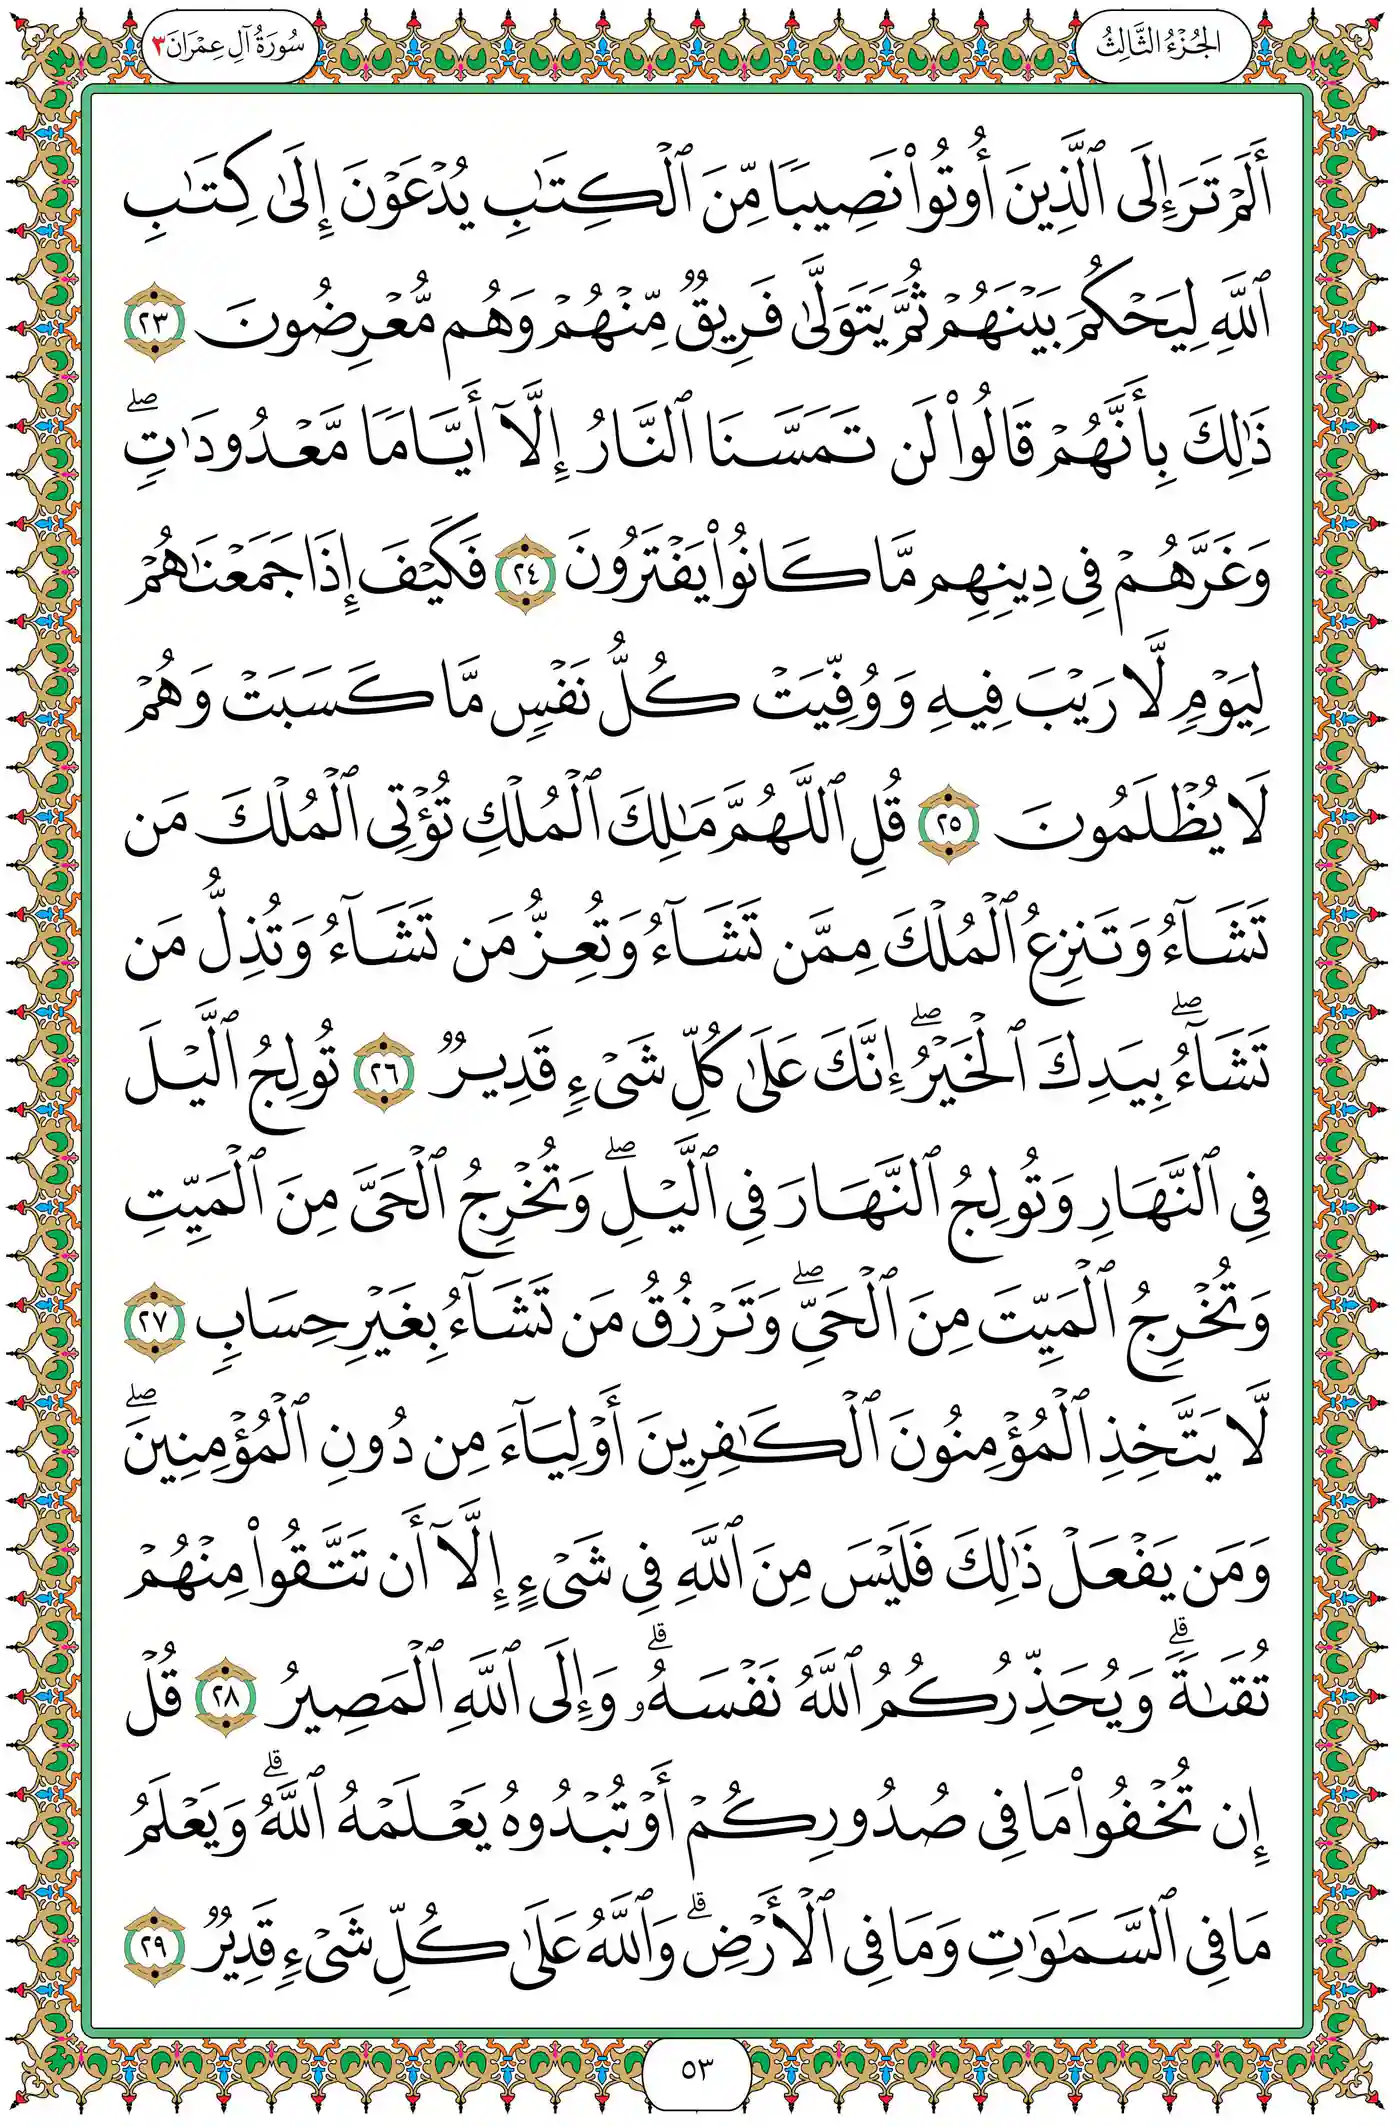 الجُزْءُ الثَّالِثُ
سُورَةُ آلِ عِمْرَانَ ٣
أَلَمۡ تَرَ إِلَى ٱلَّذِينَ أُوتُواْ نَصِيبٗا مِّنَ ٱلۡكِتَٰبِ يُدۡعَوۡنَ إِلَىٰ كِتَٰبِ
ٱللَّهِ لِيَحۡكُمَ بَيۡنَهُمۡ ثُمَّ يَتَوَلَّىٰ فَرِيقٞ مِّنۡهُمۡ وَهُم مُّعۡرِضُونَ ٢٣
ذَٰلِكَ بِأَنَّهُمۡ قَالُواْ لَن تَمَسَّنَا ٱلنَّارُ إِلَّآ أَيَّامٗا مَّعۡدُودَٰتٖۖ
وَغَرَّهُمۡ فِي دِينِهِم مَّا كَانُواْ يَفۡتَرُونَ ٢٤ فَكَيۡفَ إِذَا جَمَعۡنَٰهُمۡ
لِيَوۡمٖ لَّا رَيۡبَ فِيهِ وَوُفِّيَتۡ كُلُّ نَفۡسٖ مَّا كَسَبَتۡ وَهُمۡ
لَا يُظۡلَمُونَ ٢٥ قُلِ ٱللَّهُمَّ مَٰلِكَ ٱلۡمُلۡكِ تُؤۡتِي ٱلۡمُلۡكَ مَن
تَشَآءُ وَتَنزِعُ ٱلۡمُلۡكَ مِمَّن تَشَآءُ وَتُعِزُّ مَن تَشَآءُ وَتُذِلُّ مَن
تَشَآءُۖ بِيَدِكَ ٱلۡخَيۡرُۖ إِنَّكَ عَلَىٰ كُلِّ شَيۡءٖ قَدِيرٞ ٢٦ تُولِجُ ٱلَّيۡلَ
فِي ٱلنَّهَارِ وَتُولِجُ ٱلنَّهَارَ فِي ٱلَّيۡلِۖ وَتُخۡرِجُ ٱلۡحَيَّ مِنَ ٱلۡمَيِّتِ
وَتُخۡرِجُ ٱلۡمَيِّتَ مِنَ ٱلۡحَيِّۖ وَتَرۡزُقُ مَن تَشَآءُ بِغَيۡرِ حِسَابٖ ٢٧
لَّا يَتَّخِذِ ٱلۡمُؤۡمِنُونَ ٱلۡكَٰفِرِينَ أَوۡلِيَآءَ مِن دُونِ ٱلۡمُؤۡمِنِينَۖ
وَمَن يَفۡعَلۡ ذَٰلِكَ فَلَيۡسَ مِنَ ٱللَّهِ فِي شَيۡءٍ إِلَّآ أَن تَتَّقُواْ مِنۡهُمۡ
تُقَىٰةٗۗ وَيُحَذِّرُكُمُ ٱللَّهُ نَفۡسَهُۥۗ وَإِلَى ٱللَّهِ ٱلۡمَصِيرُ ٢٨ قُلۡ
إِن تُخۡفُواْ مَا فِي صُدُورِكُمۡ أَوۡ تُبۡدُوهُ يَعۡلَمۡهُ ٱللَّهُۗ وَيَعۡلَمُ
مَا فِي ٱلسَّمَٰوَٰتِ وَمَا فِي ٱلۡأَرۡضِۗ وَٱللَّهُ عَلَىٰ كُلِّ شَيۡءٖ قَدِيرٞ ٢٩
٥٣